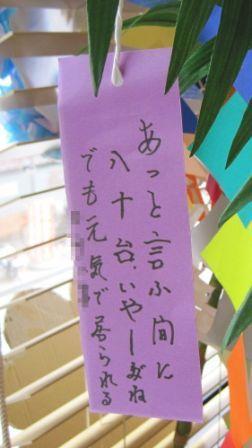 あっと言小間に
八十台.いやーだね
でも元気で居られる